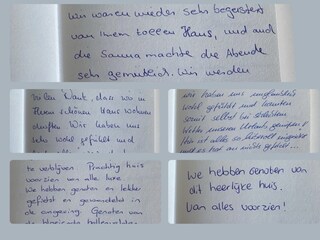 Wir waren wieder sehr begeistert
von Ihrem tollen Haus, und auch
die Sauna machte die Abende
sehr gemütlich. Wir werden
Vielen Dank, dass wir in
Ihrem schönen Haus wohnen
durften. Wir haben uns
sehr wohl gefühlt und
wir haben uns
wohl gefühlt und konnten
somit selbst bei schlechtem
Wetter unseren Urlaub genießen!
Hier ist alles so
und es hat an nichts gefehlt...
te verblijven. Prachtig huis
voorzien van alle luxe.
We hebben genoten en lekker
gefietst en gewandeld in
de omgeving. Genoten van
de bloeiende bollenvelden
We hebben genoten van
dit heerlijke huis.
Van alles voorzien!